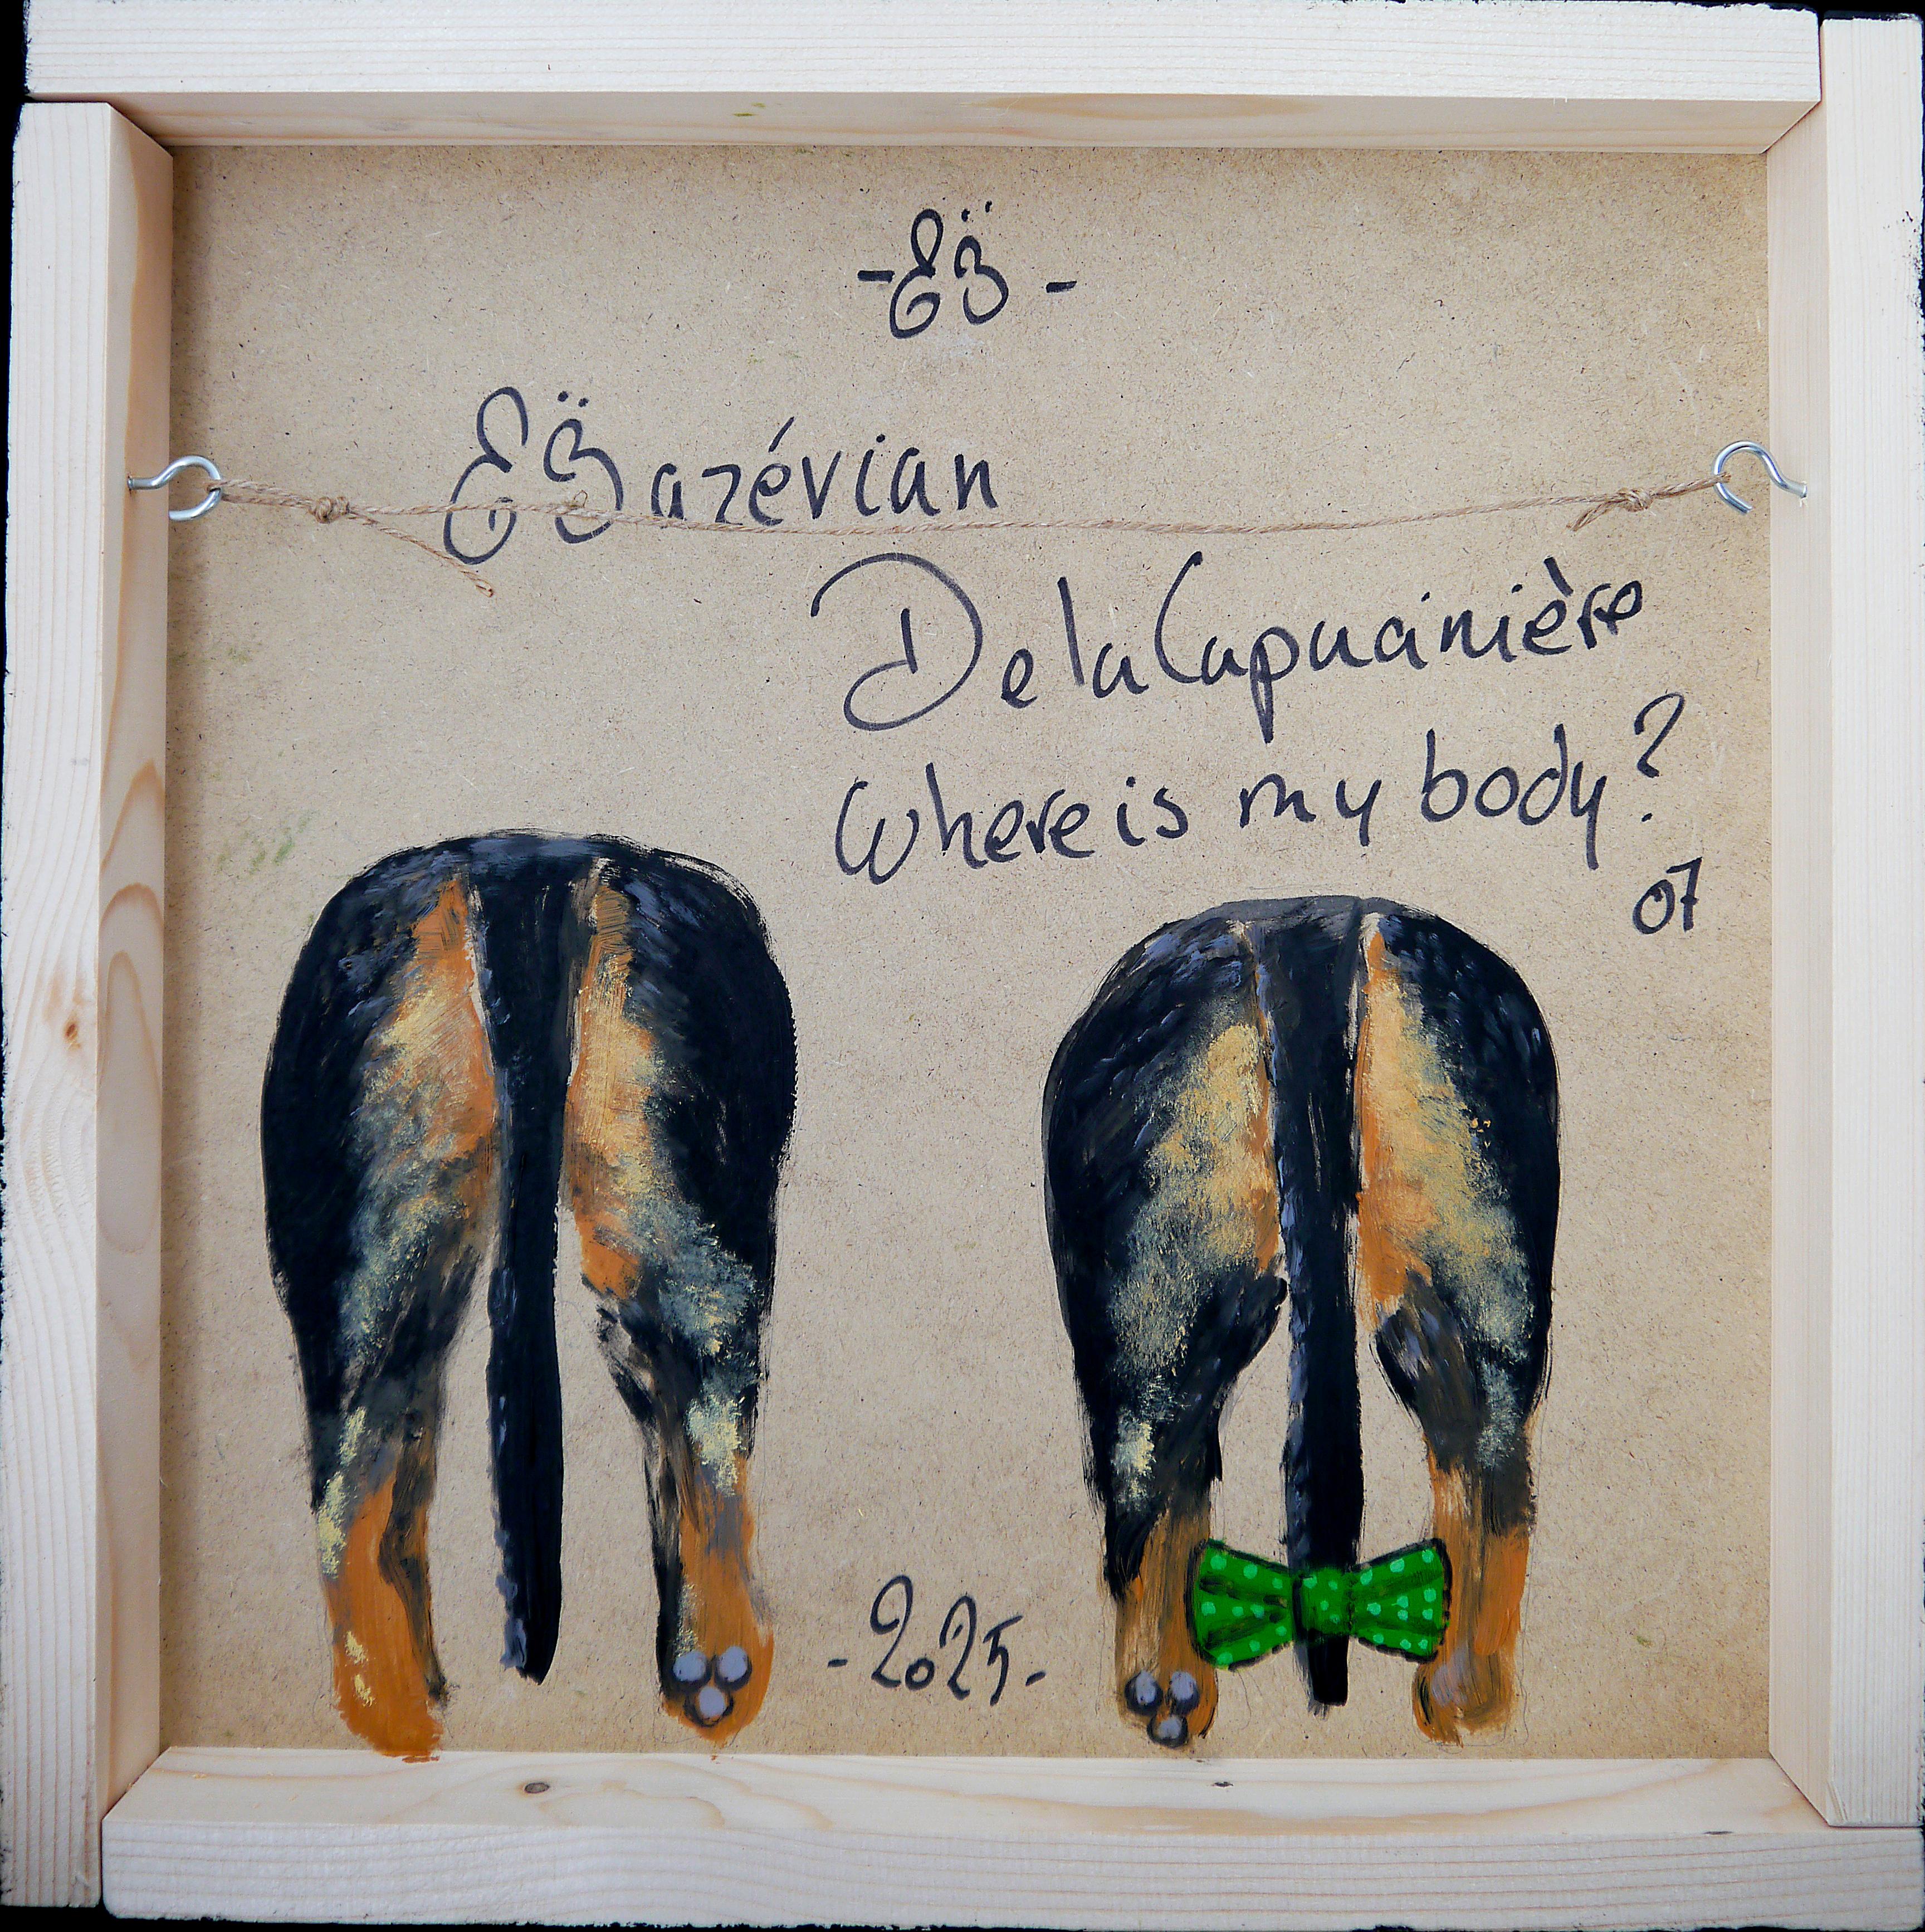 -EB̈-
EB̈azévian
De la Capucinière
Where is my body?
07
-2025-